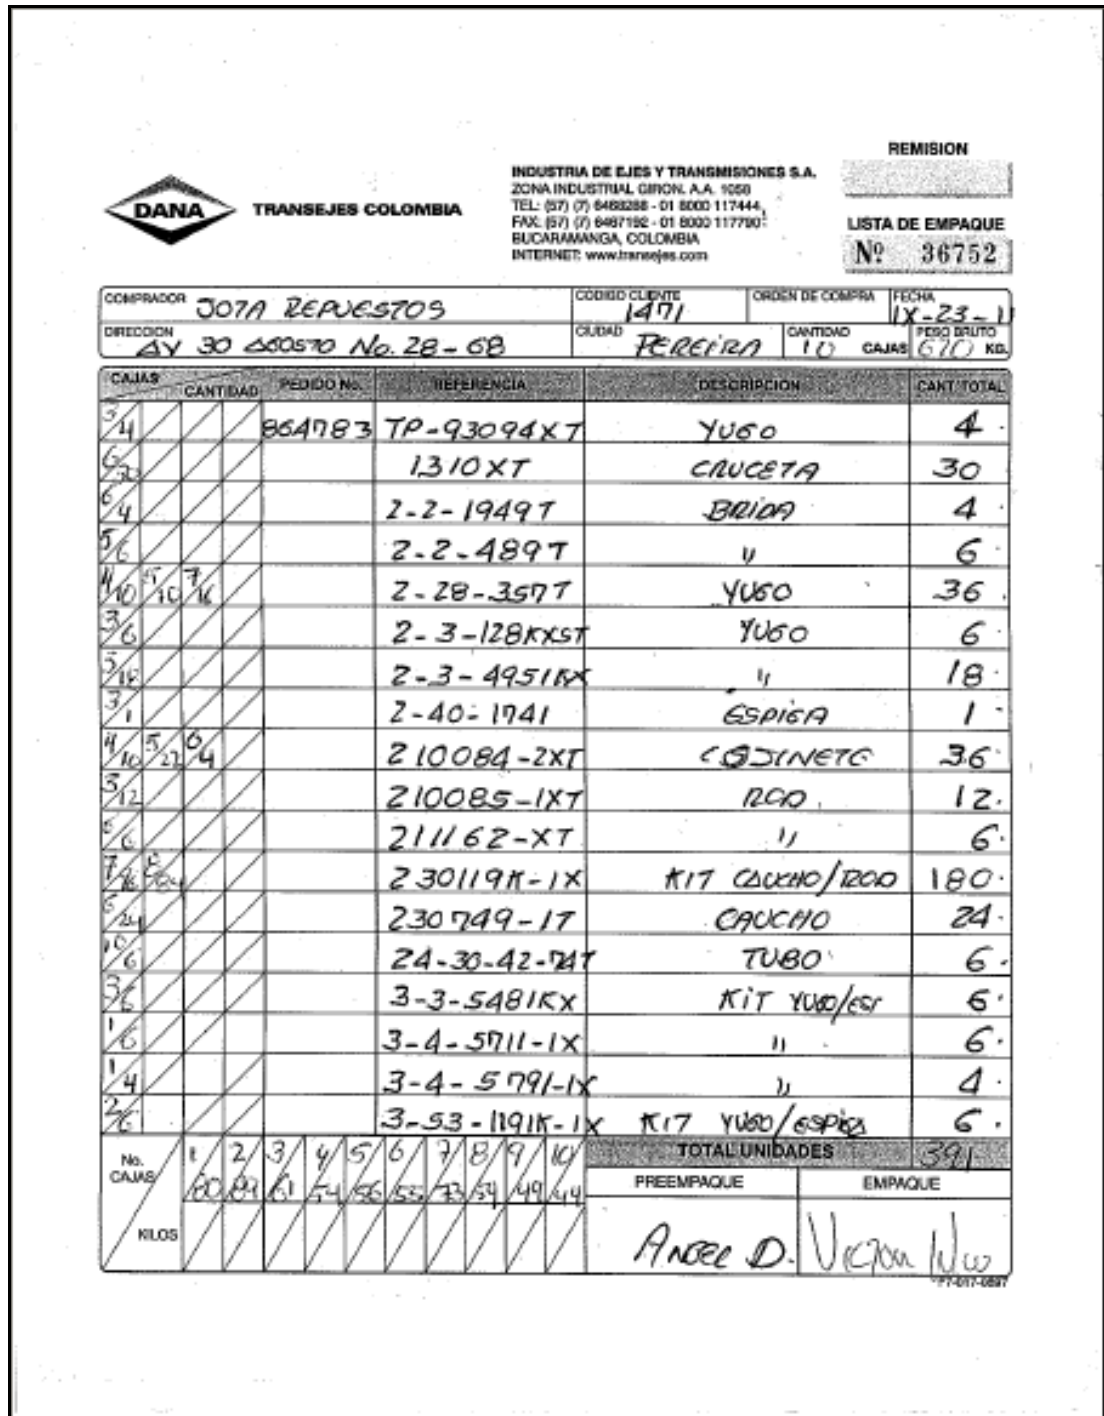 REMISION
DANA
TRANSEJES COLOMBIA
INDUSTRIA DE EJES Y TRANSMISIONES S.A.
ZONA INDUSTRIAL GIRON. A.A. 1058
TEL: (57) (7) 6468288 - 01 8000 117444
FAX: (57) (7) 6467192 - 01 8000 117790
BUCARAMANGA, COLOMBIA
INTERNET: www.transejes.com
LISTA DE EMPAQUE
Nº 36752
COMPRADOR JOTA REPUESTOS CODIGO CLIENTE 1471 ORDEN DE COMPRA FECHA IX-23-11
DIRECCION AV 30 AGOSTO No. 28-68 CIUDAD PEREIRA CANTIDAD 10 CAJAS PESO BRUTO 670 KG.
CAJAS CANTIDAD PEDIDO No. REFERENCIA DESCRIPCION CANT. TOTAL
3/4 864783 TP-93094XT YUGO 4
1310XT CRUCETA 30
6/4 2-2-1949T BRIDA 4
5/6 2-2-489T " 6
4/10 5/10 7/16 2-28-357T YUGO 36
3/6 2-3-128KXST YUGO 6
2-3-4951KX " 18
3/1 2-40-1741 ESPIGA 1
4/10 5/22 6/4 210084-2XT COJINETE 36
3/12 210085-1XT ROD. 12
6/6 211162-XT " 6
230119K-1X KIT CAUCHO/ROD 180
6/24 230749-1T CAUCHO 24
10/6 24-30-42-74T TUBO 6
3/6 3-3-5481KX KIT YUGO/ESP 6
1/6 3-4-5711-1X " 6
1/4 3-4-5791-1X " 4
2/6 3-53-1191K-1X KIT YUGO/ESPIGA 6
No. CAJAS 1/80 2/89 3/61 4/54 5/56 6/55 7/73 8/54 9/49 10/44
TOTAL UNIDADES 391
KILOS
PREEMPAQUE EMPAQUE
ANGEL D. VICTOR
F7-017-0897